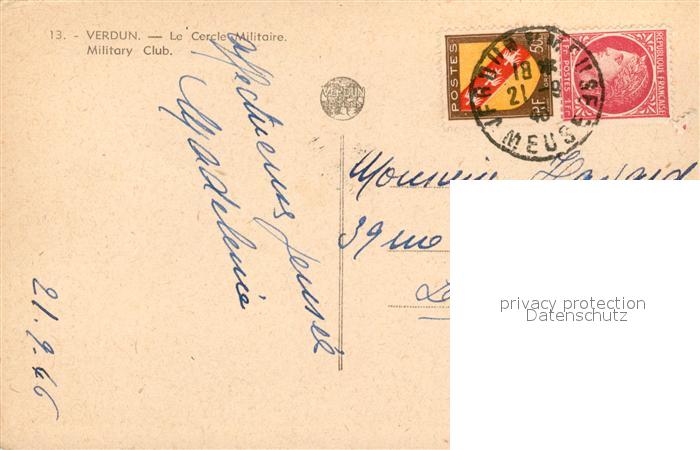 13. - VERDUN. — Le Cercle Militaire.
Military Club.
VERDUN
POSTES
50c
RF
REPUBLIQUE FRANÇAISE
1Fr POSTES 1Fr
VERDUN S/ MEUSE
18 *
21 -9
46
MEUSE
Affectueuse pensée
Madeleine
21.9.46
Monsieur
39 rue
privacy protection
Datenschutz